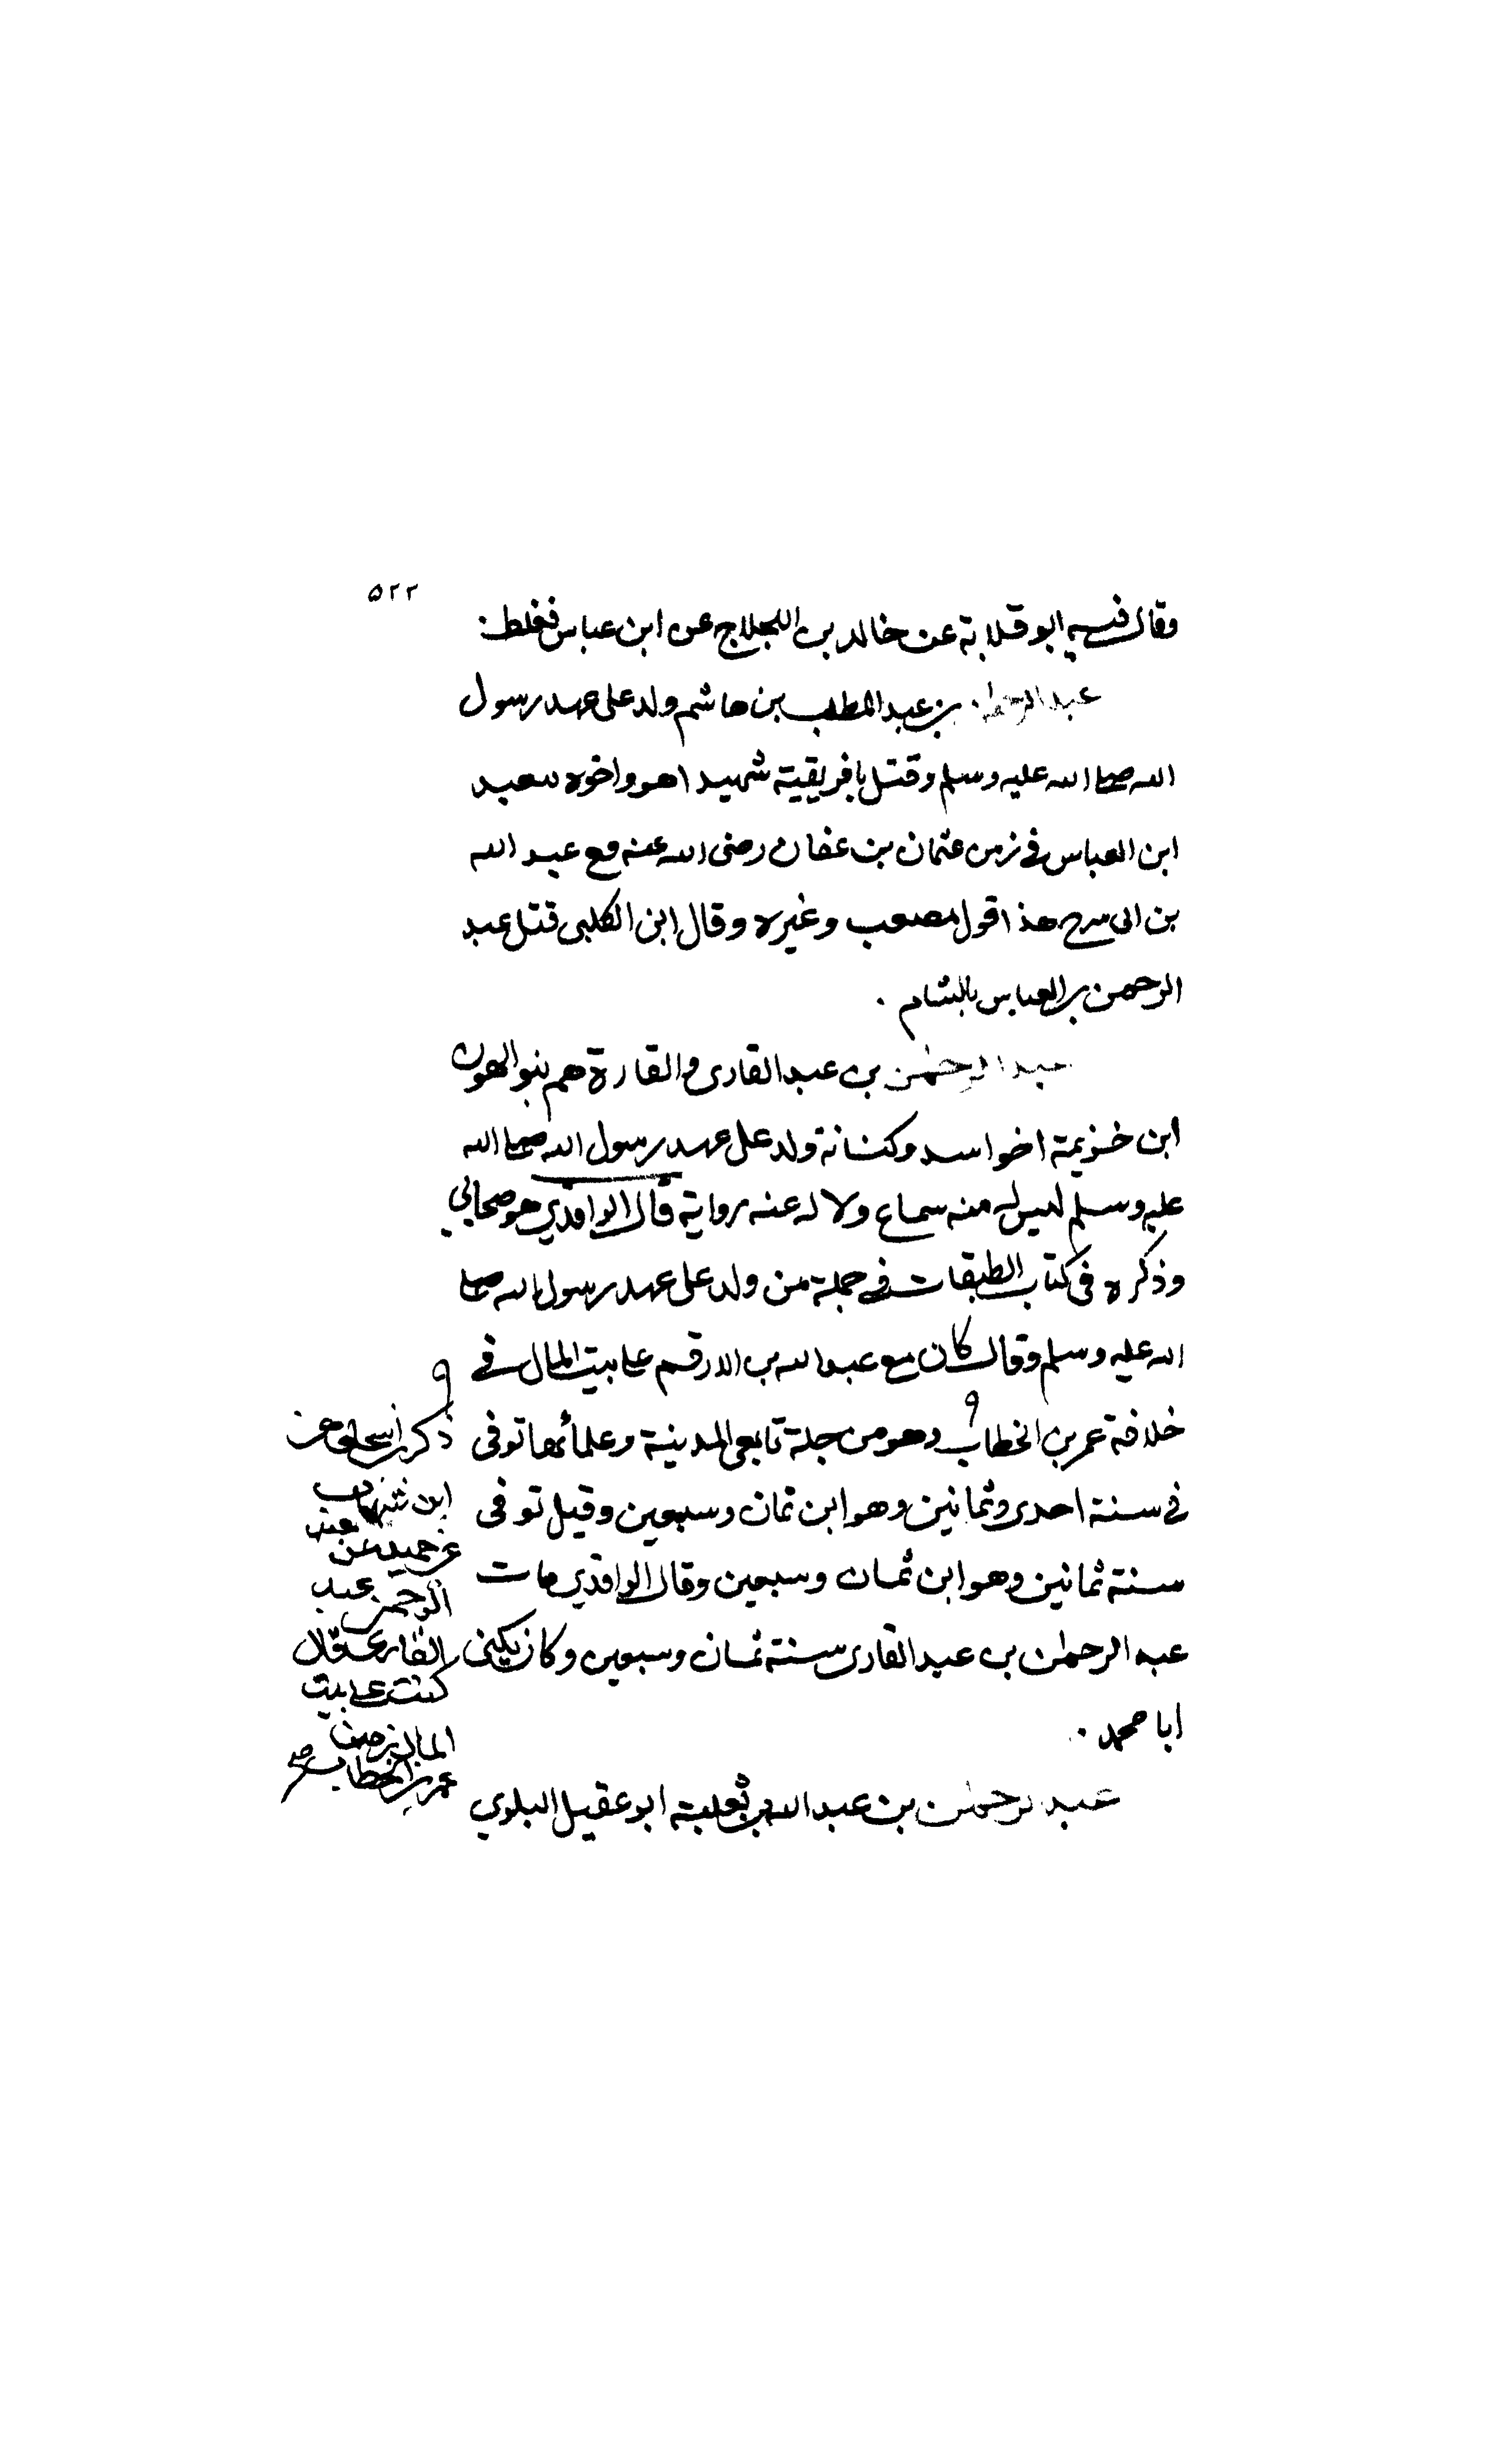 ٥٢٢
وقال فيه ابو قلابة عن خالد بن اللجلاج عن ابن عباس فغلط .
عبد الرحمن بن عبد المطلب بن هاشم ولد على عهد رسول
الله صلى الله عليه وسلم وقتل بافريقية شهيدا هو واخوه سعيد
ابن العباس في زمن عثمان بن عفان رضى الله عنه مع عبد الله
بن ابى سرح هذا قول مصعب وغيره وقال ابن الكلبى قتل عبد
الرحمن بن العباس بالشام .
عبد الرحمٰن بن عبد القارى والقارة هم بنو الهون
ابن خزيمة اخو اسد وكنانة ولد على عهد رسول الله صلى الله
عليه وسلم ليس له منه سماع ولا له عنه رواية قال الواقدي هو صحابي
وذكره فى كتاب الطبقات في جملة من ولد على عهد رسول الله صلى
الله عليه وسلم وقال كان مع عبد الله بن الارقم على بيت المال في
خلافة عمر بن الخطاب وهو من جلة تابعى المدينة وعلمائها توفى
في سنة احدى وثمانين وهو ابن ثمان وسبعين وقيل توفى
سنة ثمانين وهو ابن ثمان وسبعين وقال الواقدي مات
عبد الرحمٰن بن عبد القارى سنة ثمان وسبعين وكان يكنى
ابا محمد .
عبد الرحمٰن بن عبد الله بن ثعلبة ابو عقيل البلوي
ذكر ابن اسحٰق عن
ابن شهاب
عن حميد عن
عبد
الرحمن
القارى قال
كنت على بيت
المال زمن
عمر بن الخطاب